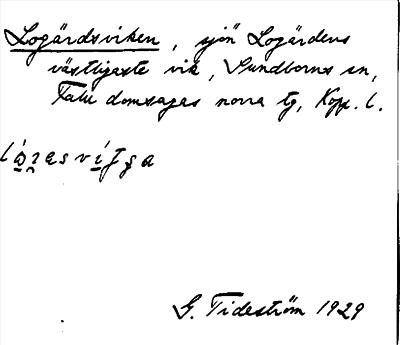 Logärdsviken, sjön Logärdens
västligaste vik, Sundborns sn,
Falu domsagas norra tg, Kopp. l.
G. Tideström 1929